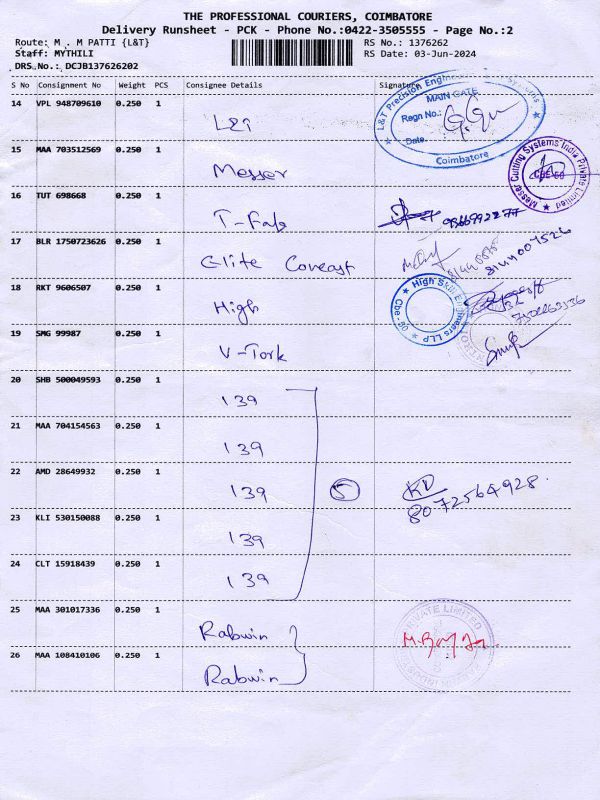 THE PROFESSIONAL COURIERS, COIMBATORE
Delivery Runsheet - PCK - Phone No.:0422-3505555 - Page No.:2
Route: M . M PATTI {L&T} RS No.: 1376262
Staff: MYTHILI RS Date: 03-Jun-2024
DRS No.: DCJB137626202
S No Consignment No Weight PCS Consignee Details Signature
14 VPL 948709610 0.250 1 L&T
L&T Precision Engineering Systems
MAIN GATE
Regn No.:
Date
Coimbatore
15 MAA 703512569 0.250 1 Messer
Messer Cutting Systems India Private Limited
CBE-60
16 TUT 698668 0.250 1 T-Fab
17 BLR 1750723626 0.250 1 Elite Coneast
8144007526
18 RKT 9606507 0.250 1 High
High Skill Engineers LLP
Cbe-06
19 SMG 99987 0.250 1 V-Tork
20 SHB 500049593 0.250 1 139
21 MAA 704154563 0.250 1 139
22 AMD 28649932 0.250 1 139 5 KV
8072564928
23 KLI 530150088 0.250 1 139
24 CLT 15918439 0.250 1 139
25 MAA 301017336 0.250 1 Rabwin
PRIVATE LIMITED
26 MAA 108410106 0.250 1 Rabwin